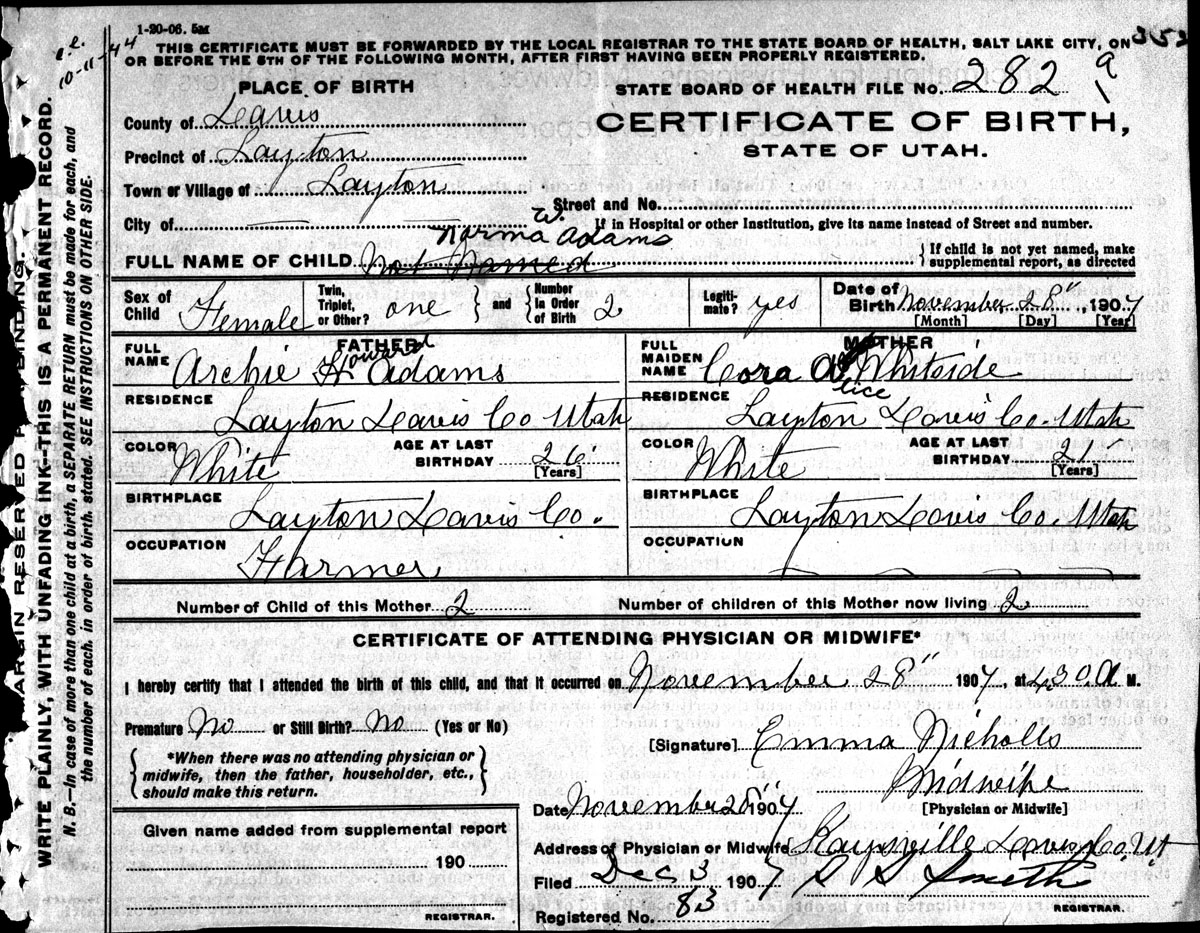 1-20-06. 5M
10-11-44
352
THIS CERTIFICATE MUST BE FORWARDED BY THE LOCAL REGISTRAR TO THE STATE BOARD OF HEALTH, SALT LAKE CITY, ON
OR BEFORE THE 5TH OF THE FOLLOWING MONTH, AFTER FIRST HAVING BEEN PROPERLY REGISTERED.
PLACE OF BIRTH
STATE BOARD OF HEALTH FILE No. 282
County of Davis
CERTIFICATE OF BIRTH,
Precinct of Layton
STATE OF UTAH.
Town or Village of Layton
Street and No.
City of
If in Hospital or other Institution, give its name instead of Street and number.
Norma W. Adams
FULL NAME OF CHILD Not Named
{ If child is not yet named, make
supplemental report, as directed
Sex of Child Female
Twin, Triplet, or Other? one } and { Number in Order of Birth 2
Legiti-mate? yes
Date of Birth November 28", 1907
[Month] [Day] [Year]
FATHER
FULL NAME Archie Howard Adams
MOTHER
FULL MAIDEN NAME Cora Alice Whitside
RESIDENCE Layton Davis Co Utah
RESIDENCE Layton Davis Co. Utah
COLOR White AGE AT LAST BIRTHDAY 26 [Years]
COLOR White AGE AT LAST BIRTHDAY 21 [Years]
BIRTHPLACE Layton Davis Co.
BIRTHPLACE Layton Davis Co. Utah
OCCUPATION Farmer
OCCUPATION
Number of Child of this Mother 2 Number of children of this Mother now living 2
CERTIFICATE OF ATTENDING PHYSICIAN OR MIDWIFE*
I hereby certify that I attended the birth of this child, and that it occurred on November 28" 1907, at 4:30 A M.
Premature No or Still Birth? No (Yes or No)
[Signature] Emma Nicholls
{ *When there was no attending physician or
midwife, then the father, householder, etc.,
should make this return. }
Midwife
[Physician or Midwife]
Date November 28" 1907
Given name added from supplemental report
190
REGISTRAR.
Address of Physician or Midwife Kaysville Davis Co. Ut
Filed Dec 3 1907 S S Smith
REGISTRAR.
Registered No. 83
MARGIN RESERVED FOR BINDING.
WRITE PLAINLY, WITH UNFADING INK—THIS IS A PERMANENT RECORD.
N. B.—In case of more than one child at a birth, a SEPARATE RETURN must be made for each, and
the number of each, in order of birth, stated. SEE INSTRUCTIONS ON OTHER SIDE.